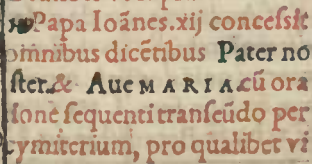 Papa Ioānes.xij conceſsit
omnibus dicētibus Pater no
ſter.& Aue MARIA.cū ora
ione ſequenti tranſeūdo per
cymiterium, pro qualibet vi